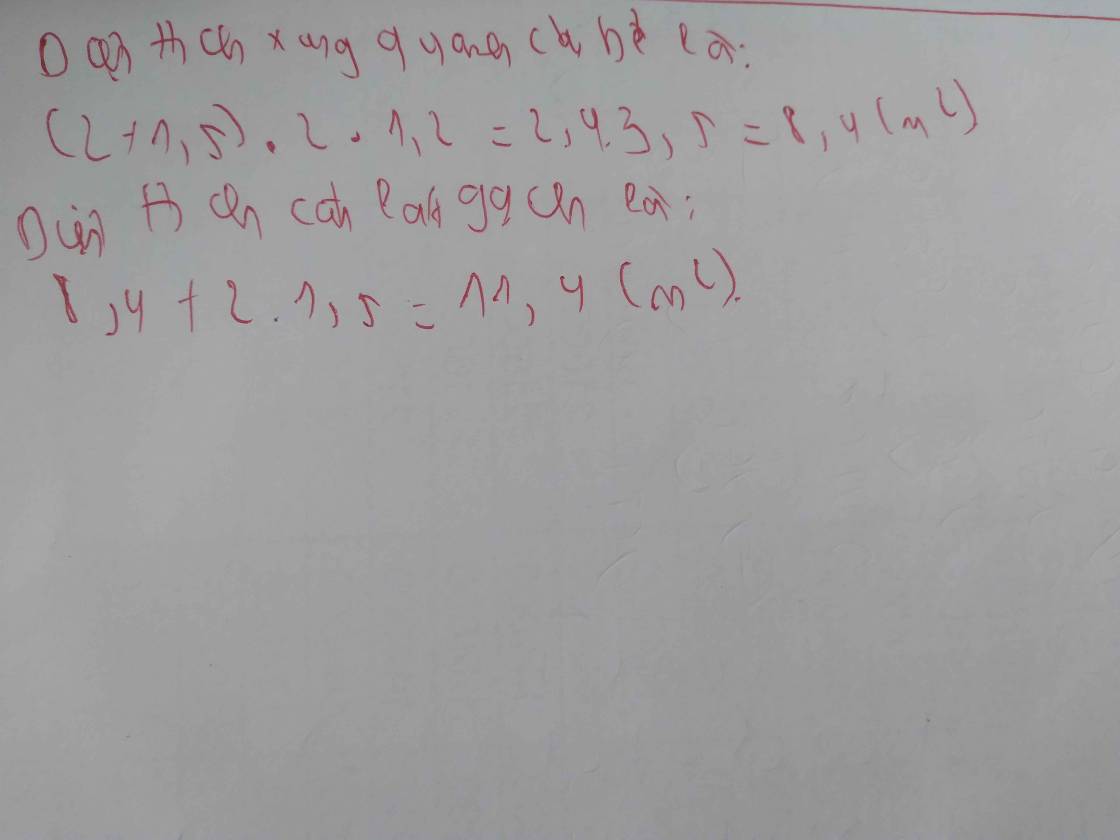 Diện tích xung quanh của bể là:
(2+1,5).2.1,2 = 2,4.3,5 = 8,4 (m²)
Diện tích cần lát gạch là:
8,4 + 2.1,5 = 11,4 (m²).